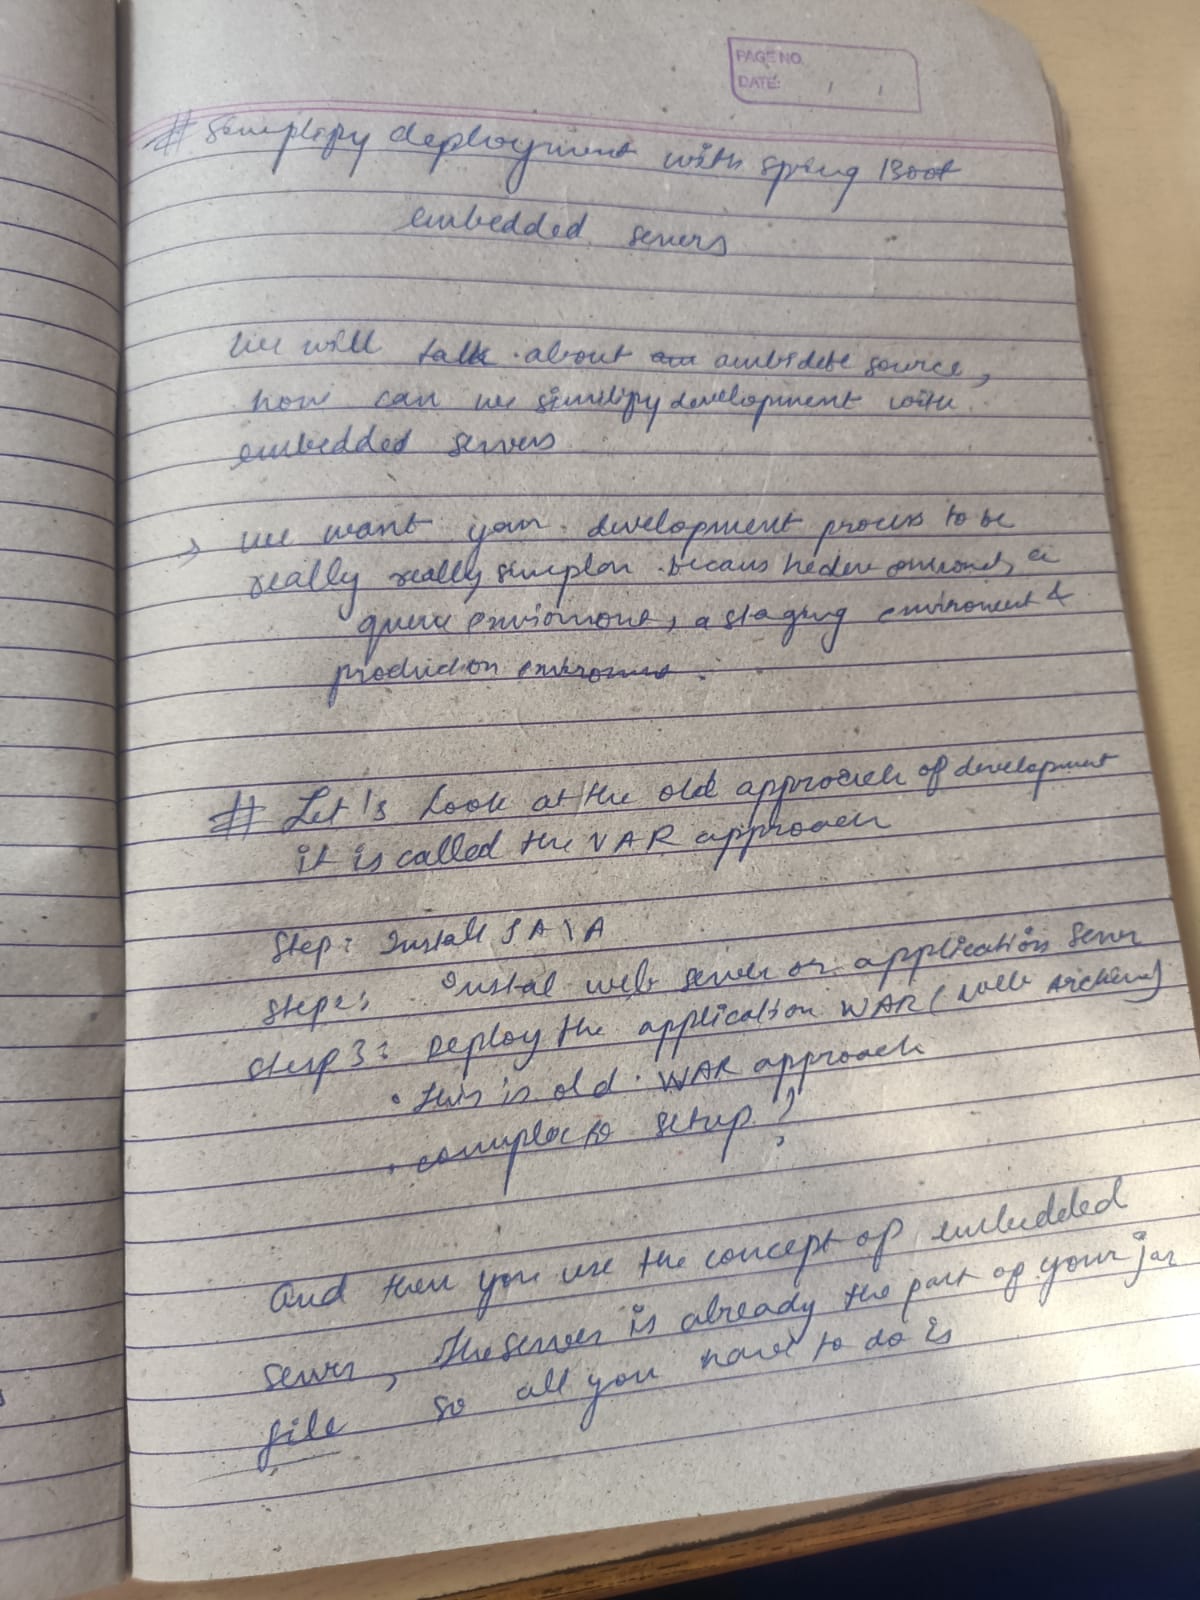 PAGE NO.
DATE: / /
# Simplify deployment with spring Boot
embedded servers
we will talk about embidebe source,
how can we similipy development with
embedded servers
→ we want your development process to be
really really simpler. becaus a
environment, a staging enviroment &
production
# Let's Look at the old approach of development
it is called the VAR approach
Step: Install JAVA
Step2: Instal web server or application server
Step3: Deploy the application WAR (web Archive)
• this is old. WAR approach
• complex to setup ?
and then you use the concept of embedded
server, the server is already the part of your jar
file so all you have to do is